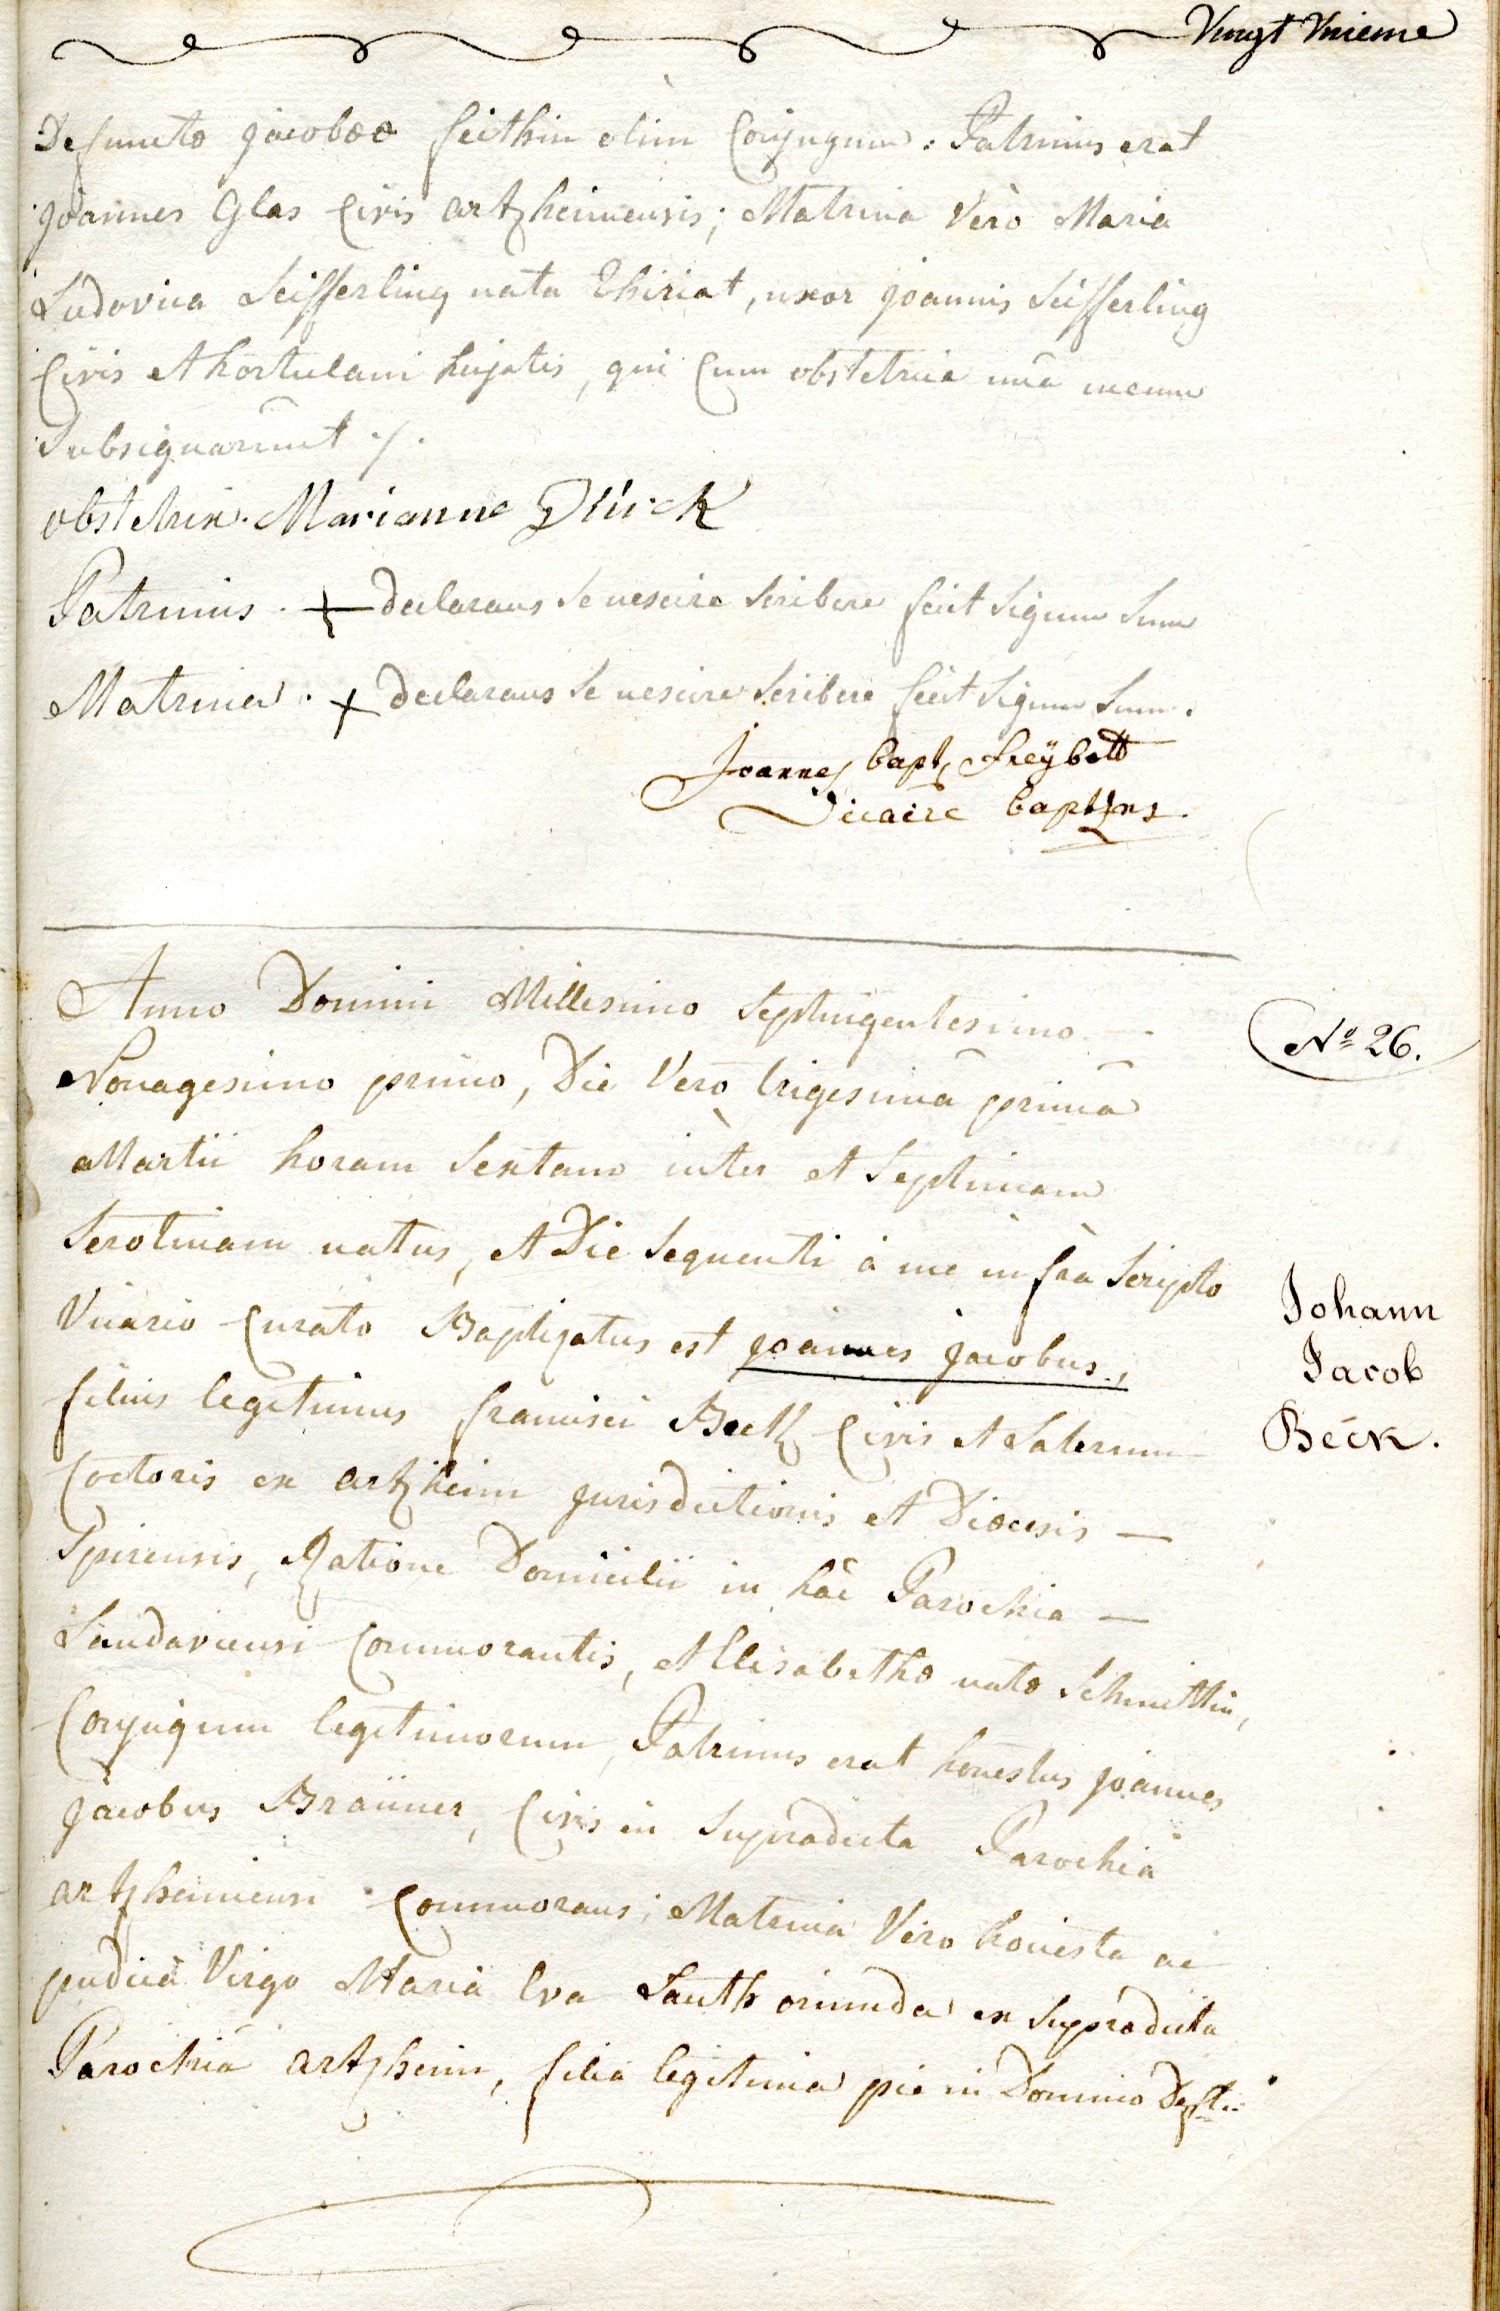 Vingt Unieme
Defunctæ Jacobææ feithin olim Conjugum. Patrinus erat
joannes Glas Civis artzheimensis; Matrina Vèrò Maria
Ludovica Seifferling nata Thiriat, uxor joannis Seifferling
Civis et hortulani hujatis, qui Cum obstetrice unà mecum
Subsignarunt ./.
obstetrix. Marianne Dück
Patrinus. + declarans se nescire scribere fecit signum suum
Matrina. + declarans se nescire scribere fecit signum suum.
Joannes bapt, Freÿbott
Vicaire baptizans.
Anno Domini Millesimo Septingentesimo
Nonagesimo primo, Die Vero trigesimâ primâ
Martii horam sextam inter et septimam
Serotinam natus, et Die sequenti à me infra scripto
Vicario Curato Baptizatus est joannes jacobus,
filius legitimus francisci Beck Civis et Laterum
Coctoris ex artzheim jurisdictionis et Diœcesis —
Spirensis, Ratione Domicilii in hâc Parochia —
Landaviensi Commorantis, et Elisabethæ natæ Schmittin,
Conjugum legitimorum, Patrinus erat honestus joannes
jacobus Braüner, Civis in supradicta Parochiâ
artzheimensi Commorans; Matrina Vero honesta ac
pudica Virgo Maria Eva Lauth oriunda ex supradicta
Parochiâ artzheim, filia legitima pie in Domino
N° 26.
Johann
Jacob
Beck.